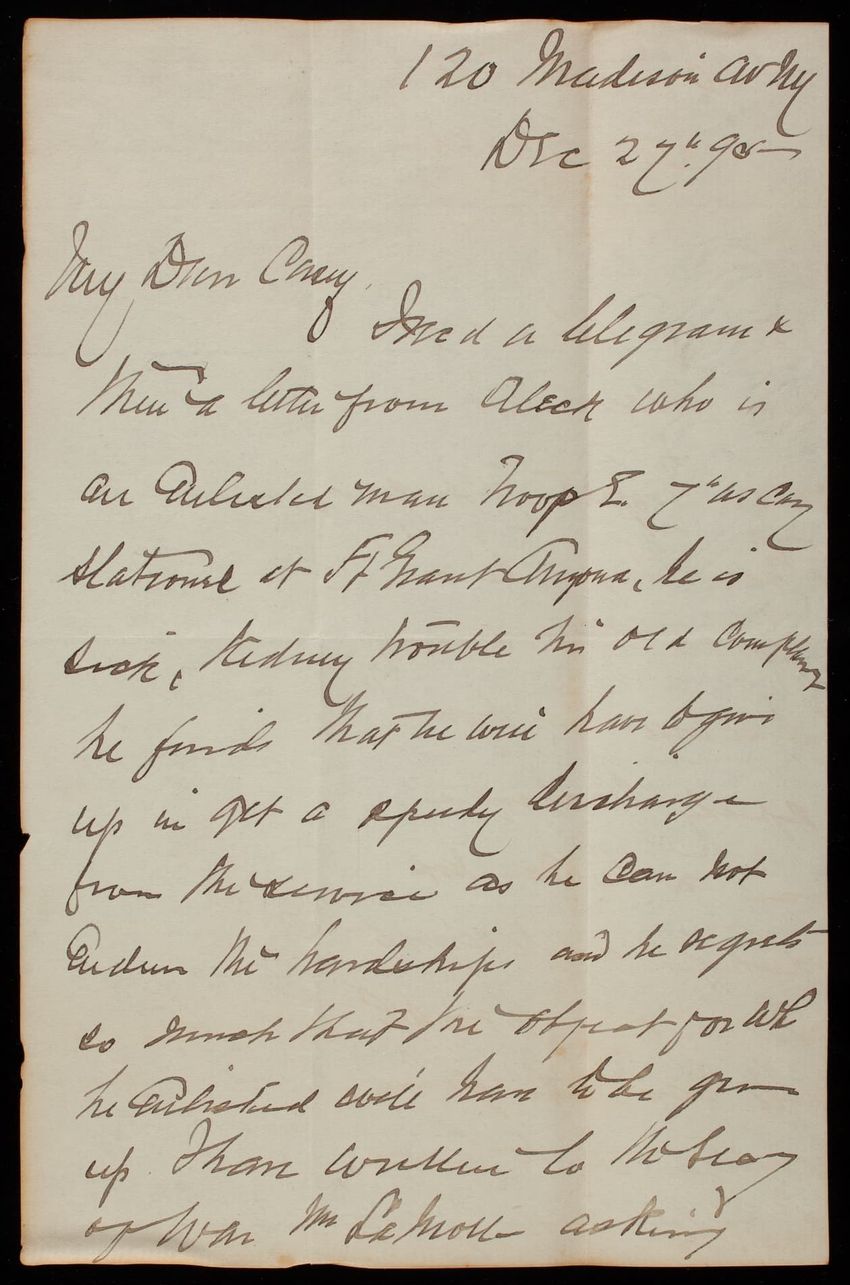 120 Madison Av NY
Dec 27th 95
My Dear Casey,
I rec'd a telegram &
then a letter from Aleck who is
an Enlisted man Troop E. 7th US Cavy
stationed at Ft Grant Arizona, he is
sick, Kidney trouble his old complaint
he finds that he will have to give
up in get a speedy discharge
from the service as he can not
Endure the hardships and he regrets
so much that the object for wh
he Enlisted will have to be given
up. I have written to the Secy
of War Mr Lamont asking